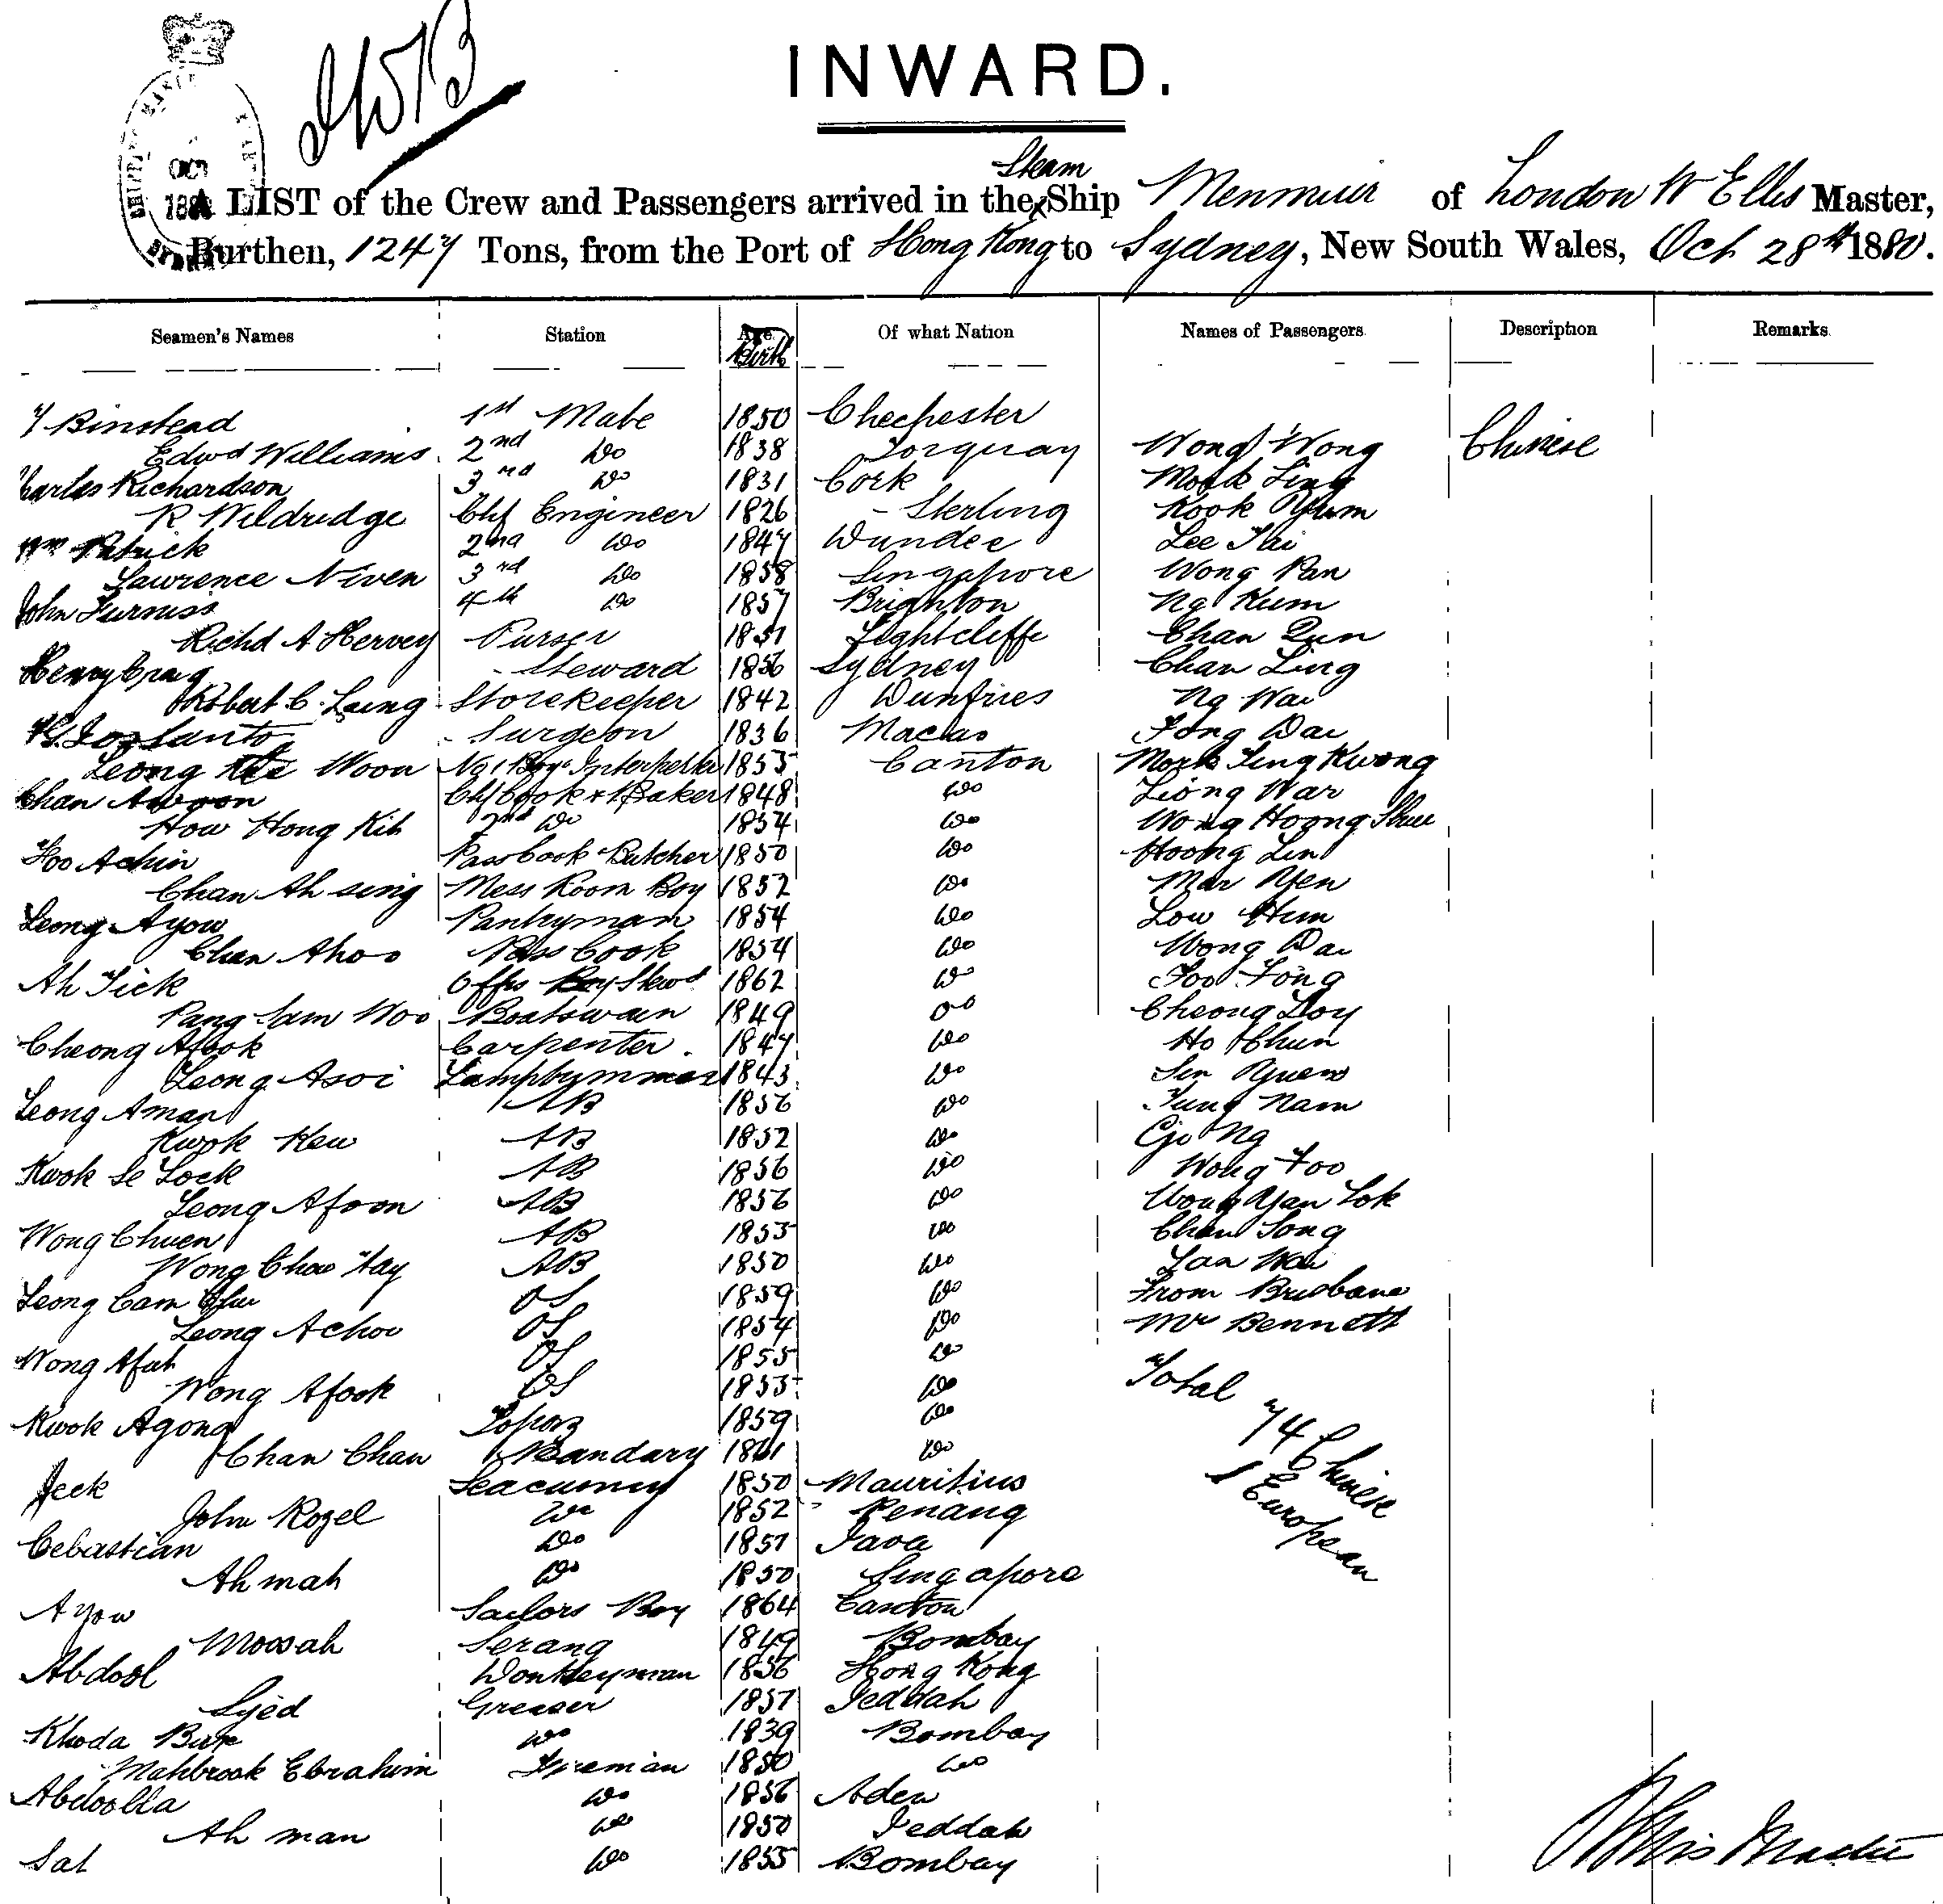 INWARD.
A LIST of the Crew and Passengers arrived in the Steam Ship Menmuir of London W Ellis Master,
Burthen, 1247 Tons, from the Port of Hong Kong to Sydney, New South Wales, Oct 28th 1880.
Seamen's Names Station Age Birth Of what Nation Names of Passengers Description Remarks
Binstead 1st Mate 1850 Chechester
Edwd Williams 2nd Do 1838 Torquay Wong Wong Chinese
Charles Richardson 3rd Do 1831 Cork Mock Ling
R Wildredge Chf Engineer 1826 Sterling Kook Yum
Wm Patrick 2nd Do 1847 Dundee Lee Tai
Lawrence Niven 3rd Do 1858 Singapore Wong Pan
John Furniss 4th Do 1857 Brighton Ng Kum
Richd A Hervey Purser 1851 Lightcliffe Chan Qun
Henry Craig Steward 1856 Sydney Chan Ling
Robert C. Laing Storekeeper 1842 Dunfries Ng Wai
Surgeon 1836 Macao Fong Dai
Leong Kee Woon No 1 Boy & Interpreter 1855 Canton Mock Ting Kwong
Chan Awoon Chf Cook & Baker 1848 Do Liong War
How Hong Kih 2nd Do 1854 Do Wong Hoong Shue
Foo Achin Pass Cook & Butcher 1850 Do Hoong Lin
Chan Ah sing Mess Room Boy 1852 Do Mar Yen
Leong Ayow Pantryman 1854 Do Low Hum
Chan Ahoo Pass Cook 1854 Do Wong Dai
Ah Tick Offrs Boy Stewd 1862 Do Foo Fong
Pang Sam Woo Boatswain 1849 Do Cheong Loy
Cheong Afook Carpenter. 1847 Do Ho Chun
Leong Asoi Lamptrimmer 1843 Do Sin Yuen
Leong Aman AB 1856 Do Yung Nam
Kwok Kew AB 1852 Do Ng
Kwok Se Lock AB 1856 Do Wong Foo
Leong Afoon AB 1856 Do Wong Yan Lok
Wong Chuen AB 1853 Do Chan Song
Wong Chow Hay AB 1850 Do Lan Wai
Leong Cam Chu OS 1859 Do From Brisbane
Leong Achoi OS 1854 Do Mr Bennett
Wong Afat OS 1855 Do
Wong Afook OS 1853 Do Total
Kwok Agong Topaz 1859 Do 74 Chinese
Chan Chan Bandary 1861 Do 1 European
Jeek Seacunny 1850 Mauritius
John Rozel Do 1852 Penang
Cebastian Do 1851 Java
Ah mah Do 1850 Singapore
Ayow Sailors Boy 1864 Canton
Mossah Serang 1849 Bombay
Abdool Donkeyman 1856 Hong Kong
Syed Greaser 1857 Jeddah
Khoda Bux Do 1839 Bombay
Mahbrook Ebrahim Fireman 1850 Do
Abdoolla Do 1856 Aden
Ah man Do 1850 Jeddah
Sal Do 1855 Bombay
W Ellis Master